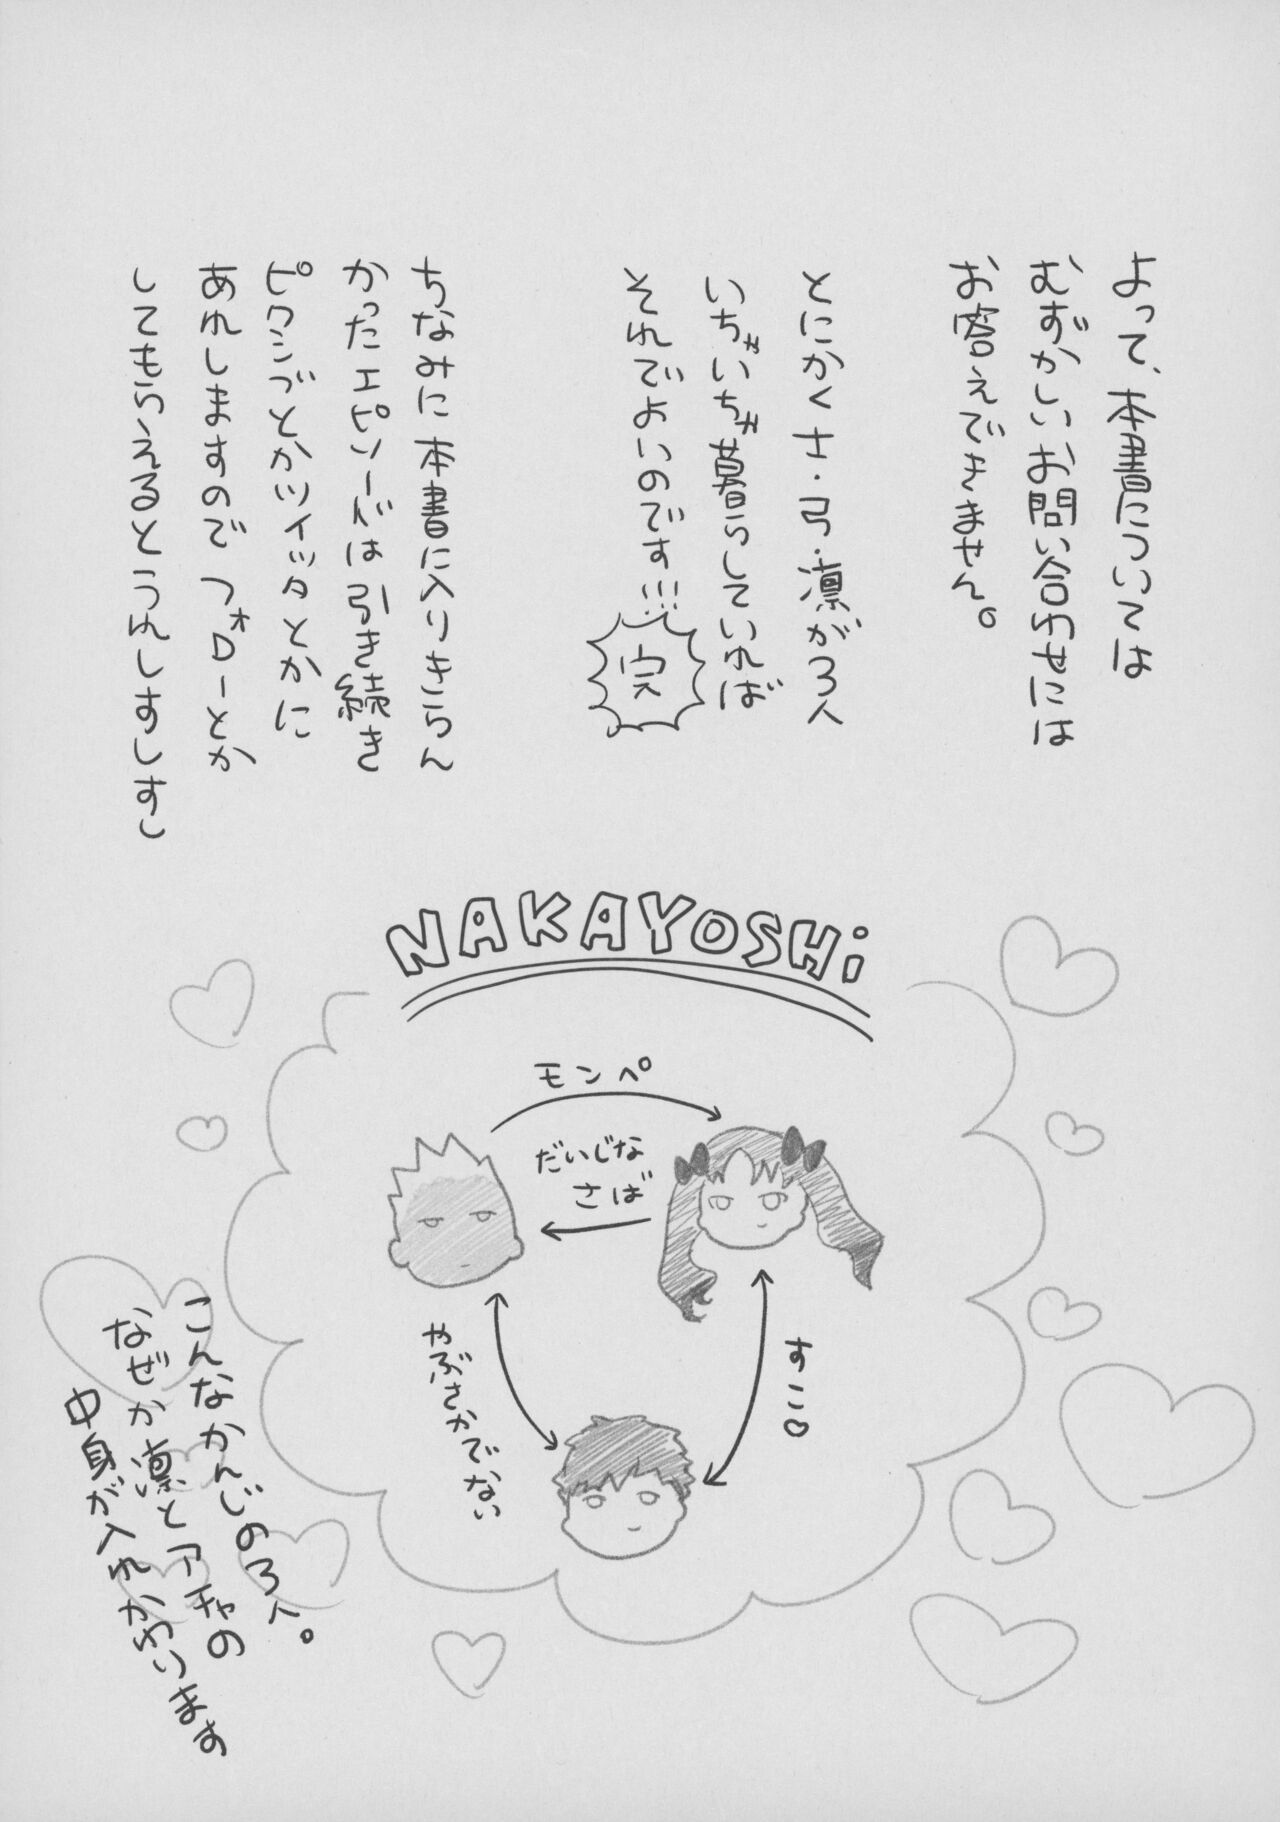 よって、本書については
むずかしいお問い合わせには
お答えできません。
とにかく士・弓・凛が3人
いちゃいちゃ暮らしていれば
それでよいのです!!!
完
ちなみに本書に入りきらん
かったエピソードは引き続き
ピクシブとかツイッタとかに
あれしますのでフォローとか
してもらえるとうれしすしすし
NAKAYOSHi
モンペ
だいじな
さば
すこ♡
やぶさかでない
こんなかんじの3人。
なぜか凛とアチャの
中身が入れかわります